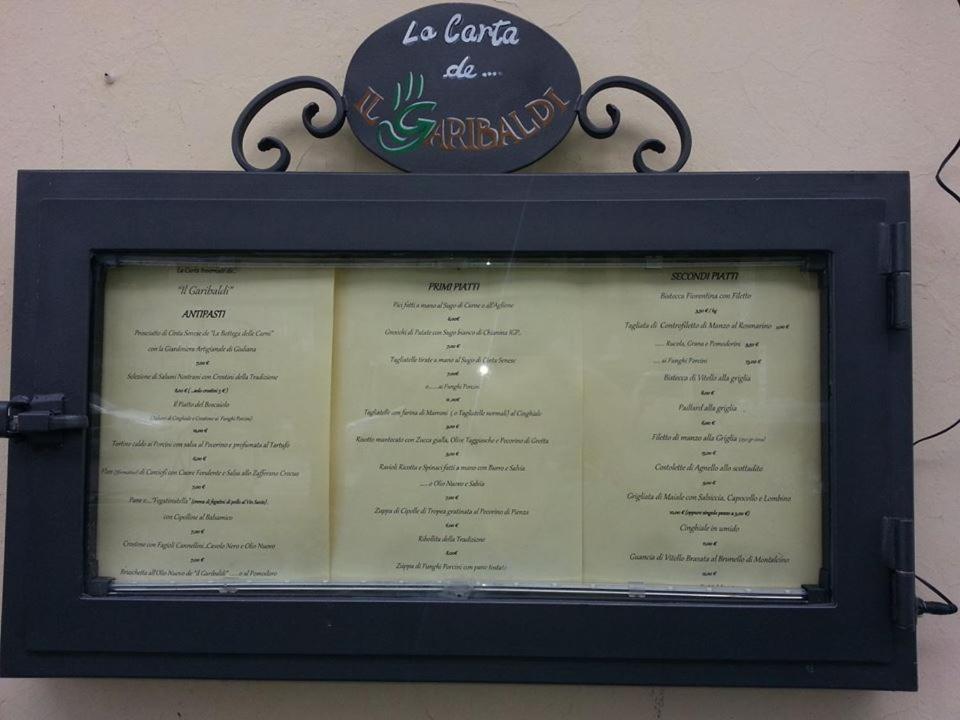 La Carta
de....
IL GARIBALDI
La Carta Invernale de...
"Il Garibaldi"
ANTIPASTI
Prosciutto di Cinta Senese de "La Bottega delle Carni"
con la Giardiniera Artigianale di Giuliana
7,00 €
Selezione di Salumi Nostrani con Crostini della Tradizione
8,00 € ( ...solo crostini 5 € )
Il Piatto del Boscaiolo
(Salumi di Cinghiale e Crostone ai Funghi Porcini)
Tortino caldo ai Porcini con salsa al Pecorino e profumata al Tartufo
6,00 €
Flan di Carciofi con Cuore Fondente e Salsa allo Zafferano Crocus
7,00 €
Pane e...."Fegatinatella" (crema di fegatini di pollo al Vin Santo)
con Cipolline al Balsamico
7,00 €
Crostone con Fagioli Cannellini, Cavolo Nero e Olio Nuovo
7,00 €
Bruschetta all'Olio Nuovo de "il Garibaldi" ......o al Pomodoro
PRIMI PIATTI
Pici fatti a mano al Sugo di Carne o all'Aglione
6,00€
Gnocchi di Patate con Sugo bianco di Chianina IGP..
7,00 €
Tagliatelle tirate a mano al Sugo di Cinta Senese
7,00€
o......ai Funghi Porcini
Tagliatelle con farina di Marroni ( o Tagliatelle normali) al Cinghiale
9,00 €
Risotto mantecato con Zucca gialla, Olive Taggiasche e Pecorino di Grotta
Ravioli Ricotta e Spinaci fatti a mano con Burro e Salvia
......o Olio Nuovo e Salvia
7,00 €
Zuppa di Cipolle di Tropea gratinata al Pecorino di Pienza
6,00 €
Ribollita della Tradizione
8,00€
Zuppa di Funghi Porcini con pane tostato
SECONDI PIATTI
Bistecca Fiorentina con Filetto
3,50 € / hg
Tagliata di Controfiletto di Manzo al Rosmarino
...... Rucola, Grana e Pomodorini
.... ai Funghi Porcini 13,00 €
Bistecca di Vitello alla griglia
8,00 €
Paillard alla griglia
6,00 €
Filetto di manzo alla Griglia
15,00 €
Costolette di Agnello allo scottadito
9,00 €
Grigliata di Maiale con Salsiccia, Capocollo e Lombino
10,00 € (oppure singolo pezzo a 5,00 €)
Cinghiale in umido
Guancia di Vitello Brasata al Brunello di Montalcino